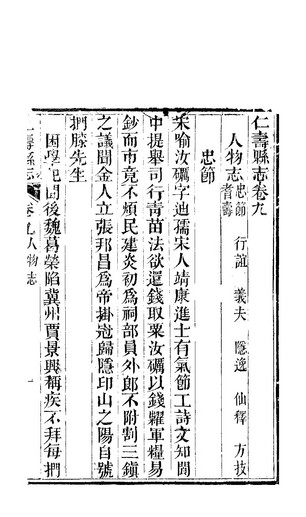 仁壽縣志卷九
人物志 忠節 行誼 義夫 隱逸 仙釋 方技
耆壽
忠節
朱喻汝礪字迪孺宋人靖康進士有氣節工詩文知閬
中提舉司行青苗法欲還錢取粟汝礪以錢糴軍糧易
鈔而市竟不煩民建炎初為祠部員外郎不附割三鎮
之議聞金人立張邦昌為帝掛冠歸隱印山之陽自號
捫膝先生
困學紀聞後魏葛榮陷冀州賈景興稱疾不拜每捫
仁壽縣志 卷九人物志 一